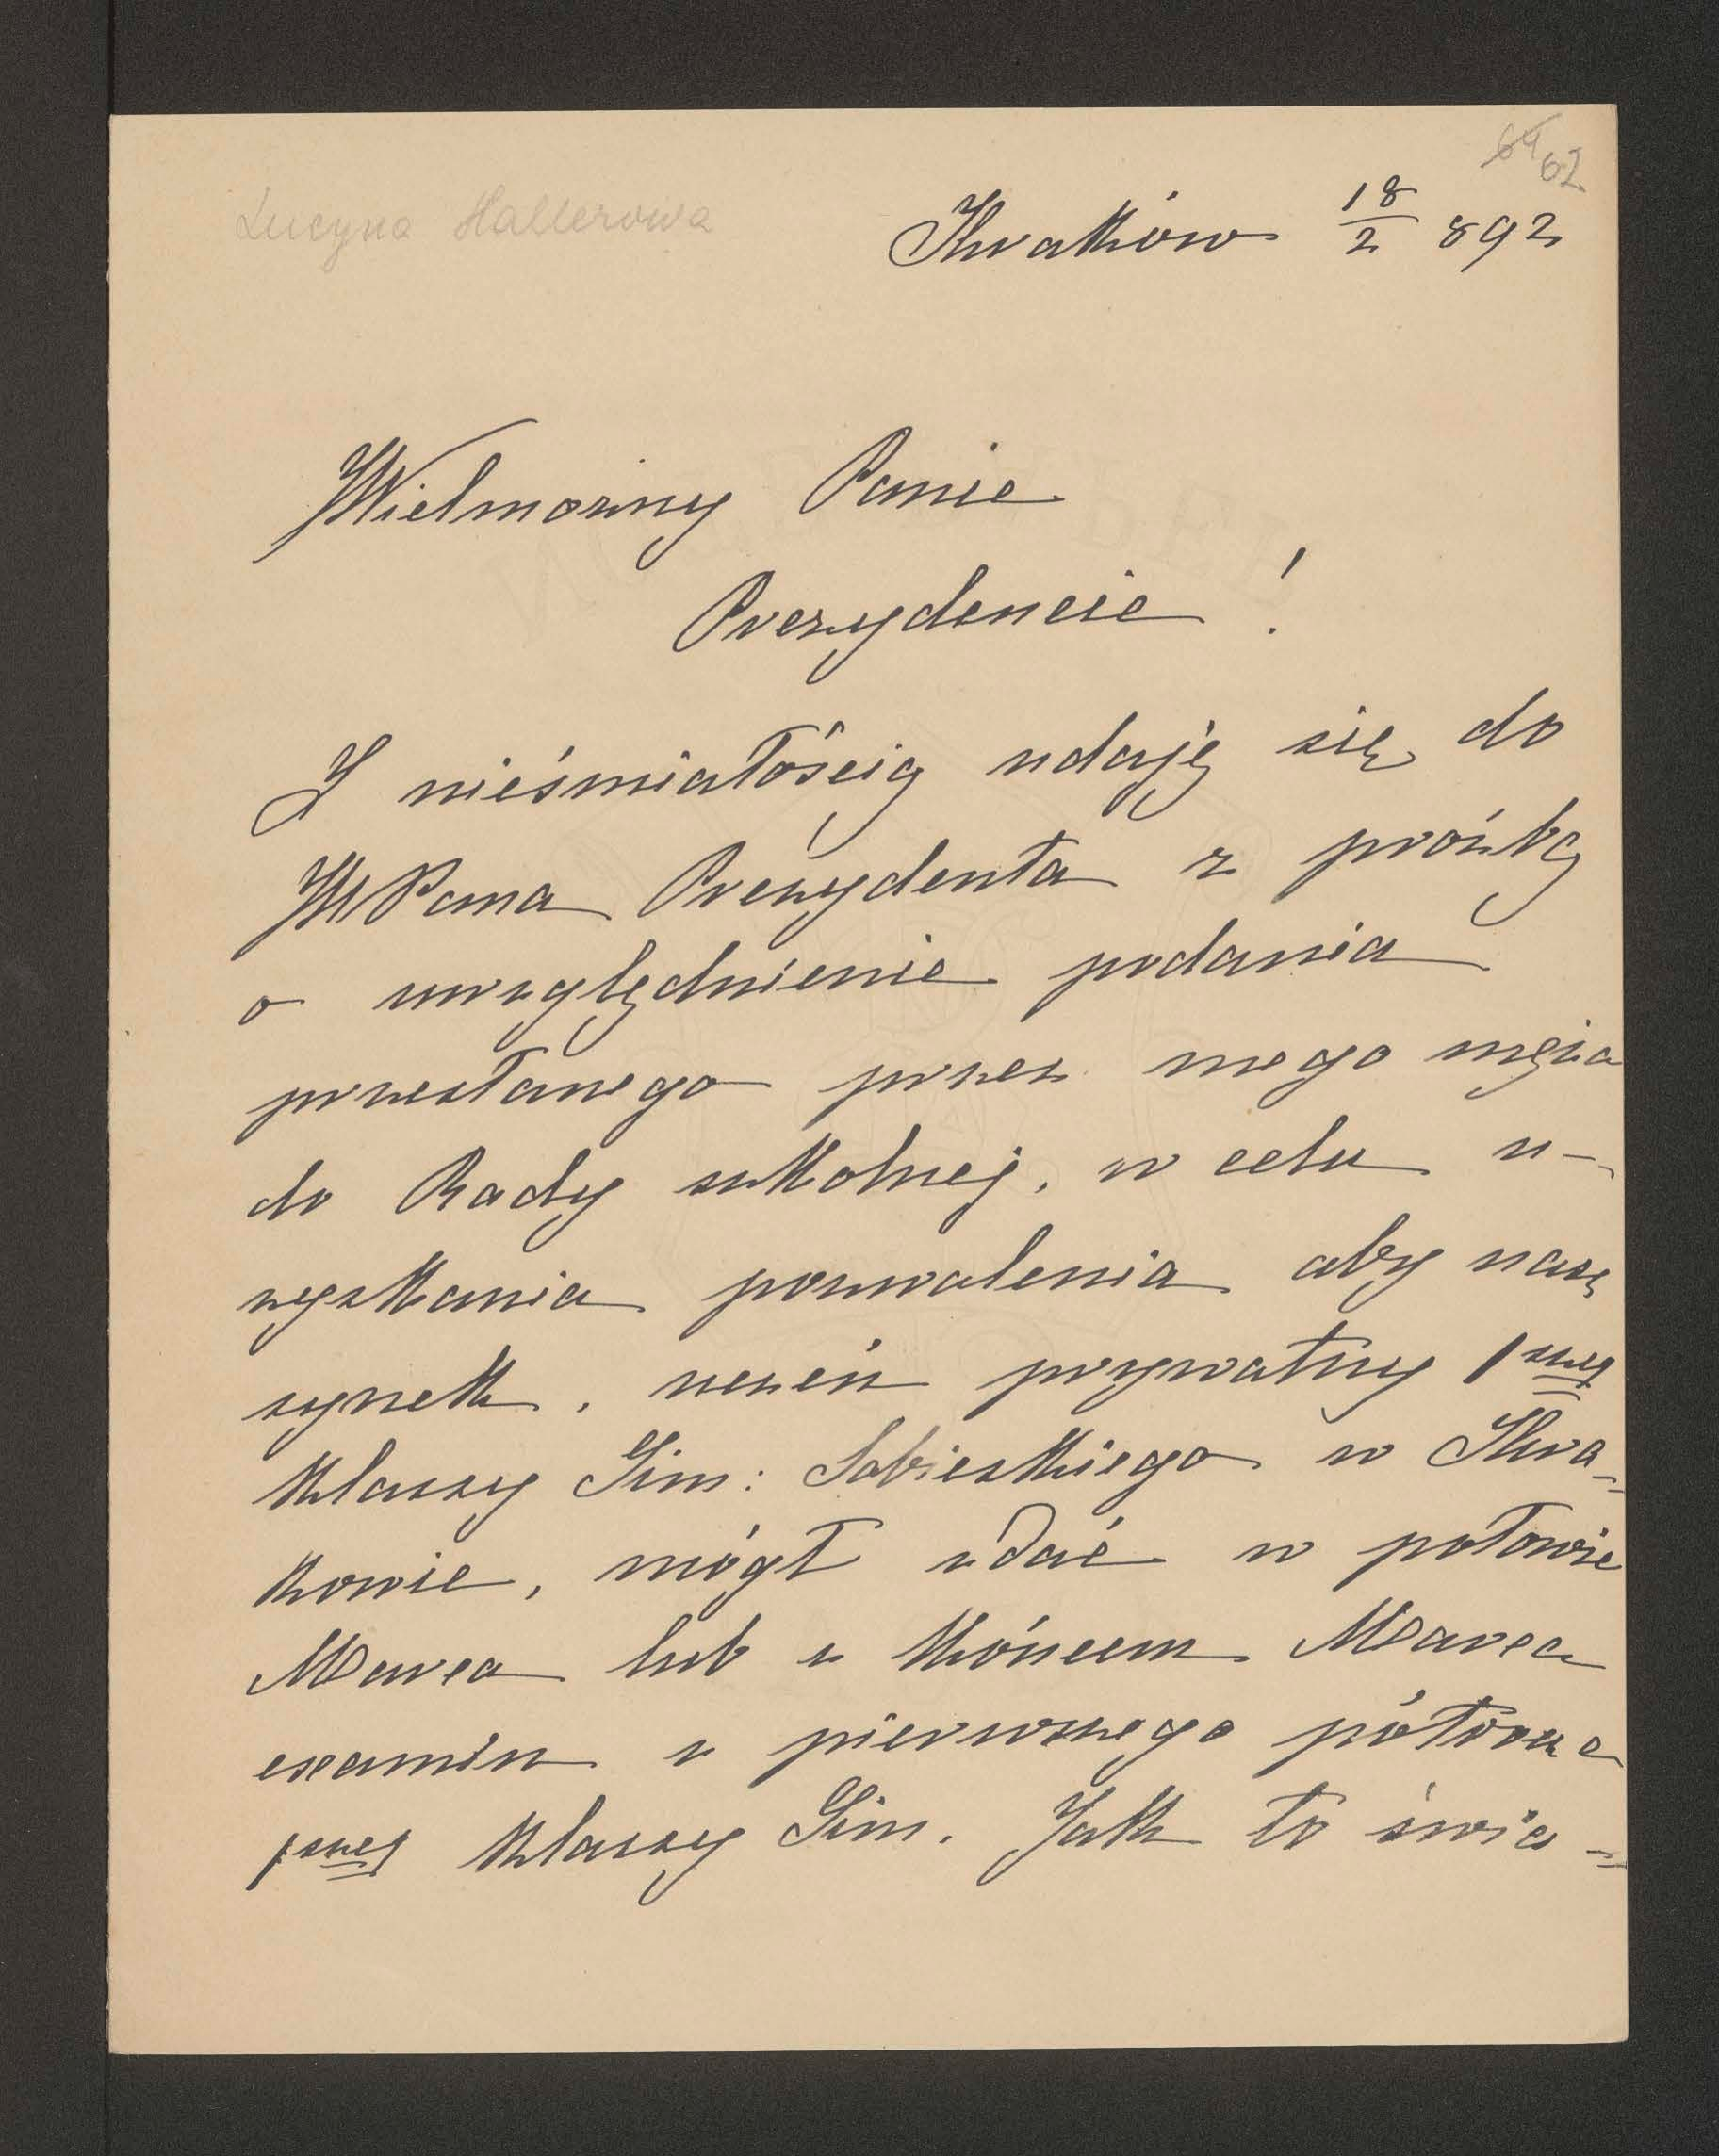 64 62
Lucyna Hallerowa
Kraków 18/2 892
Wielmożny Panie
Prezydencie !
Z nieśmiałością udaję się do
WPana Prezydenta z prośbą
o uwzględnienie podania
przesłanego przez mego męża
do Rady szkolnej, w celu u-
zyskania pozwolenia aby nasz
synek, uczeń prywatny 1szej
klassy Gim: Sobieskiego w Kra-
kowie, mógł zdać w połowie
Marca lub z końcem Marca
examin z pierwszego półrocza
1szej klassy Gim. Jak to świa-